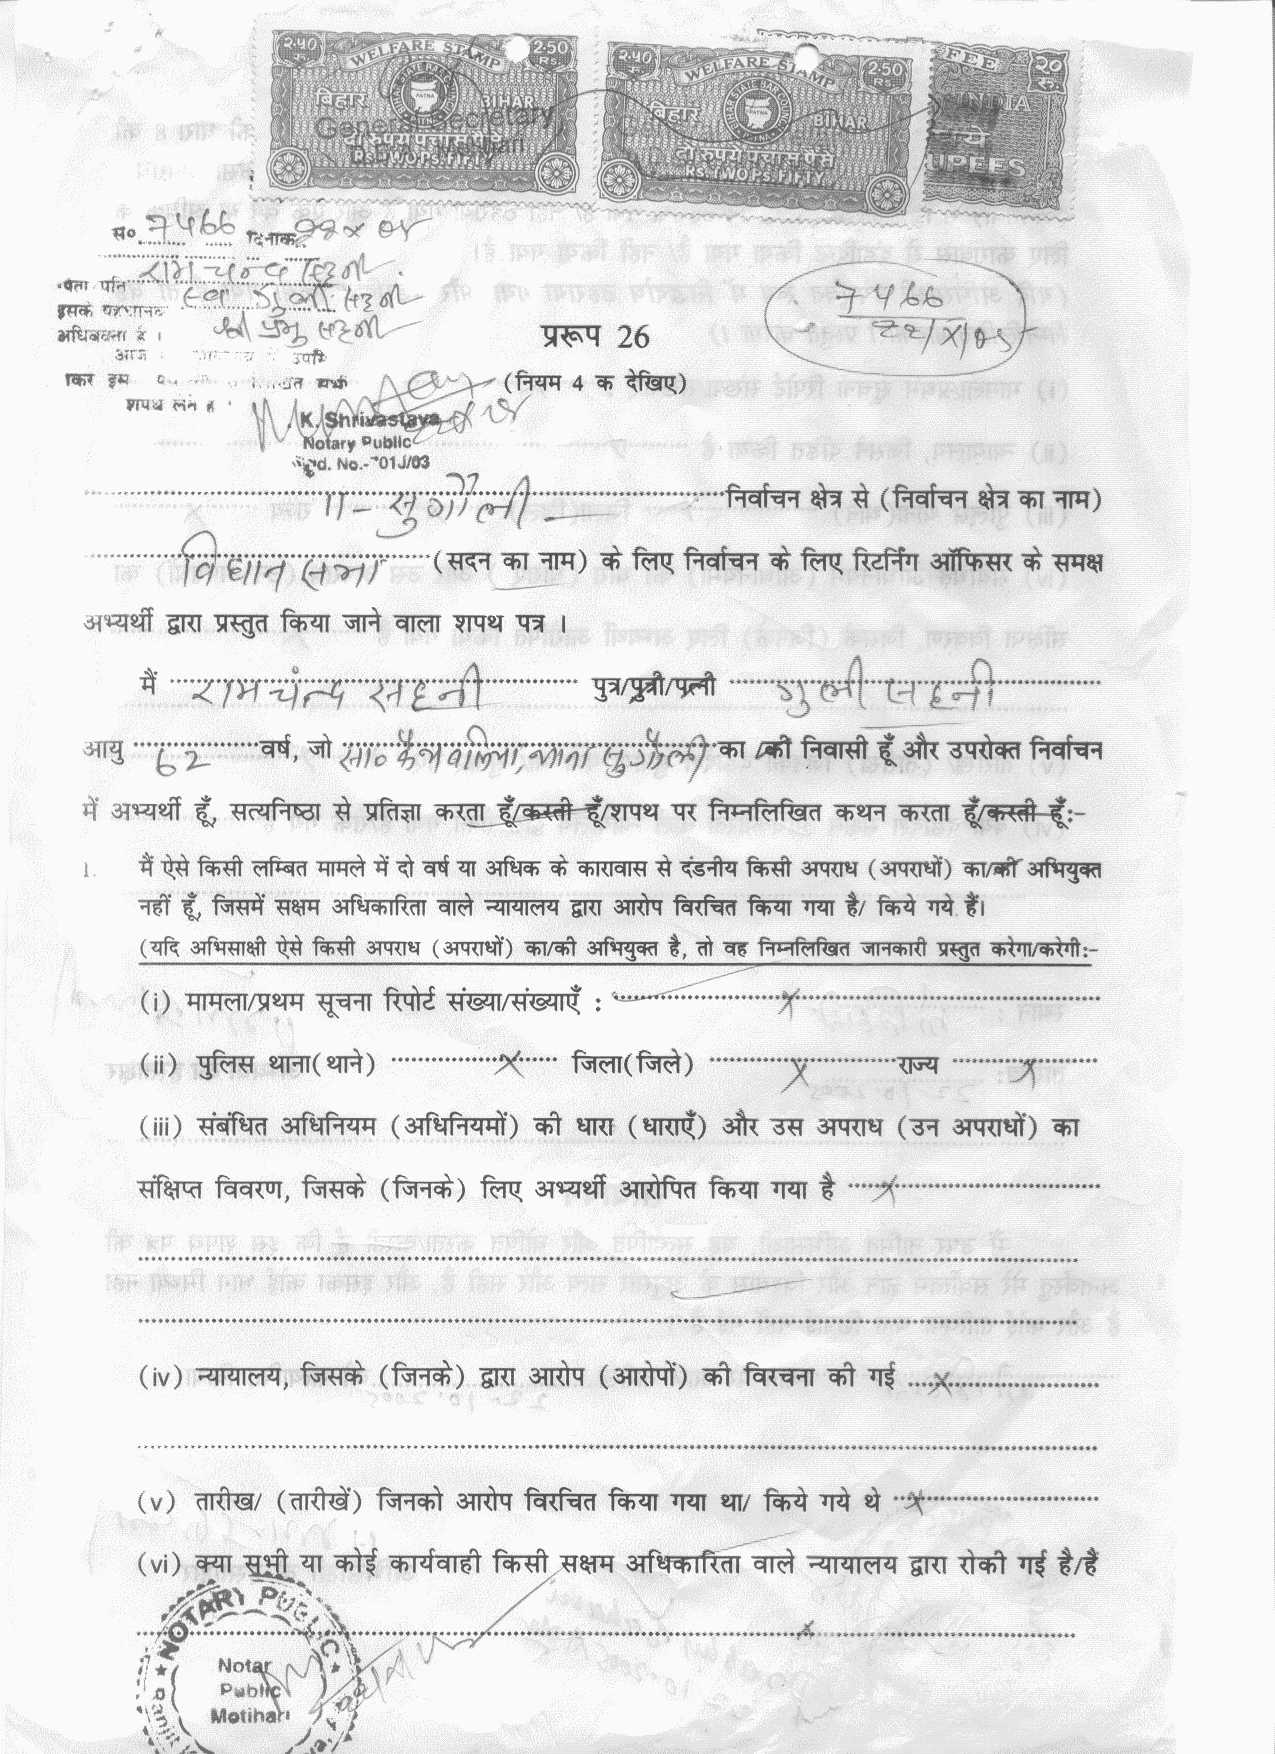 २.५० WELFARE STAMP 2.50 RS.
बिहार BIHAR
General Secretary
दो रुपये पचास पैसे
RS. TWO PS. FIFTY
२.५० WELFARE STAMP 2.50 RS.
बिहार BIHAR
दो रुपये पचास पैसे
RS. TWO PS. FIFTY
FEE २० रु.
INDIA
रुपये
RUPEES
सं० 7466 दिनांक
रामचन्द्र सहनी
पिता पति स्व० गुली सहनी
इसके पहचानकर्ता श्री प्रभु सहनी
अधिवक्ता है ।
शपथ लेते हैं
7466
22/X/05
प्ररूप 26
(नियम 4 क देखिए)
K. Shrivastava
Notary Public
11- सुगौली निर्वाचन क्षेत्र से (निर्वाचन क्षेत्र का नाम)
विधान सभा (सदन का नाम) के लिए निर्वाचन के लिए रिटर्निंग ऑफिसर के समक्ष
अभ्यर्थी द्वारा प्रस्तुत किया जाने वाला शपथ पत्र ।
मैं रामचंन्द्र सहनी पुत्र/पुत्री/पत्नी गुली सहनी
आयु 62 वर्ष, जो सा० थाना सुगौली का/की निवासी हूँ और उपरोक्त निर्वाचन
में अभ्यर्थी हूँ, सत्यनिष्ठा से प्रतिज्ञा करता हूँ/करती हूँ/शपथ पर निम्नलिखित कथन करता हूँ/करती हूँ:-
1. मैं ऐसे किसी लम्बित मामले में दो वर्ष या अधिक के कारावास से दंडनीय किसी अपराध (अपराधों) का/की अभियुक्त
नहीं हूँ, जिसमें सक्षम अधिकारिता वाले न्यायालय द्वारा आरोप विरचित किया गया है/ किये गये हैं।
(यदि अभिसाक्षी ऐसे किसी अपराध (अपराधों) का/की अभियुक्त है, तो वह निम्नलिखित जानकारी प्रस्तुत करेगा/करेगी:-
(i) मामला/प्रथम सूचना रिपोर्ट संख्या/संख्याएँ : x
(ii) पुलिस थाना(थाने) x जिला(जिले) x राज्य x
(iii) संबंधित अधिनियम (अधिनियमों) की धारा (धाराएँ) और उस अपराध (उन अपराधों) का
संक्षिप्त विवरण, जिसके (जिनके) लिए अभ्यर्थी आरोपित किया गया है x
(iv) न्यायालय, जिसके (जिनके) द्वारा आरोप (आरोपों) की विरचना की गई x
(v) तारीख/ (तारीखें) जिनको आरोप विरचित किया गया था/ किये गये थे x
(vi) क्या सभी या कोई कार्यवाही किसी सक्षम अधिकारिता वाले न्यायालय द्वारा रोकी गई है/हैं
x
NOTARY PUBLIC
Notar
Public
Motihari